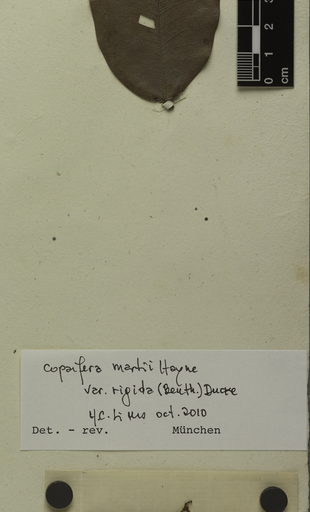 0 1 2 3
cm
Copaifera martii Hayne
var. rigida (Benth.) Ducke
oct. 2010
Det. - rev. München